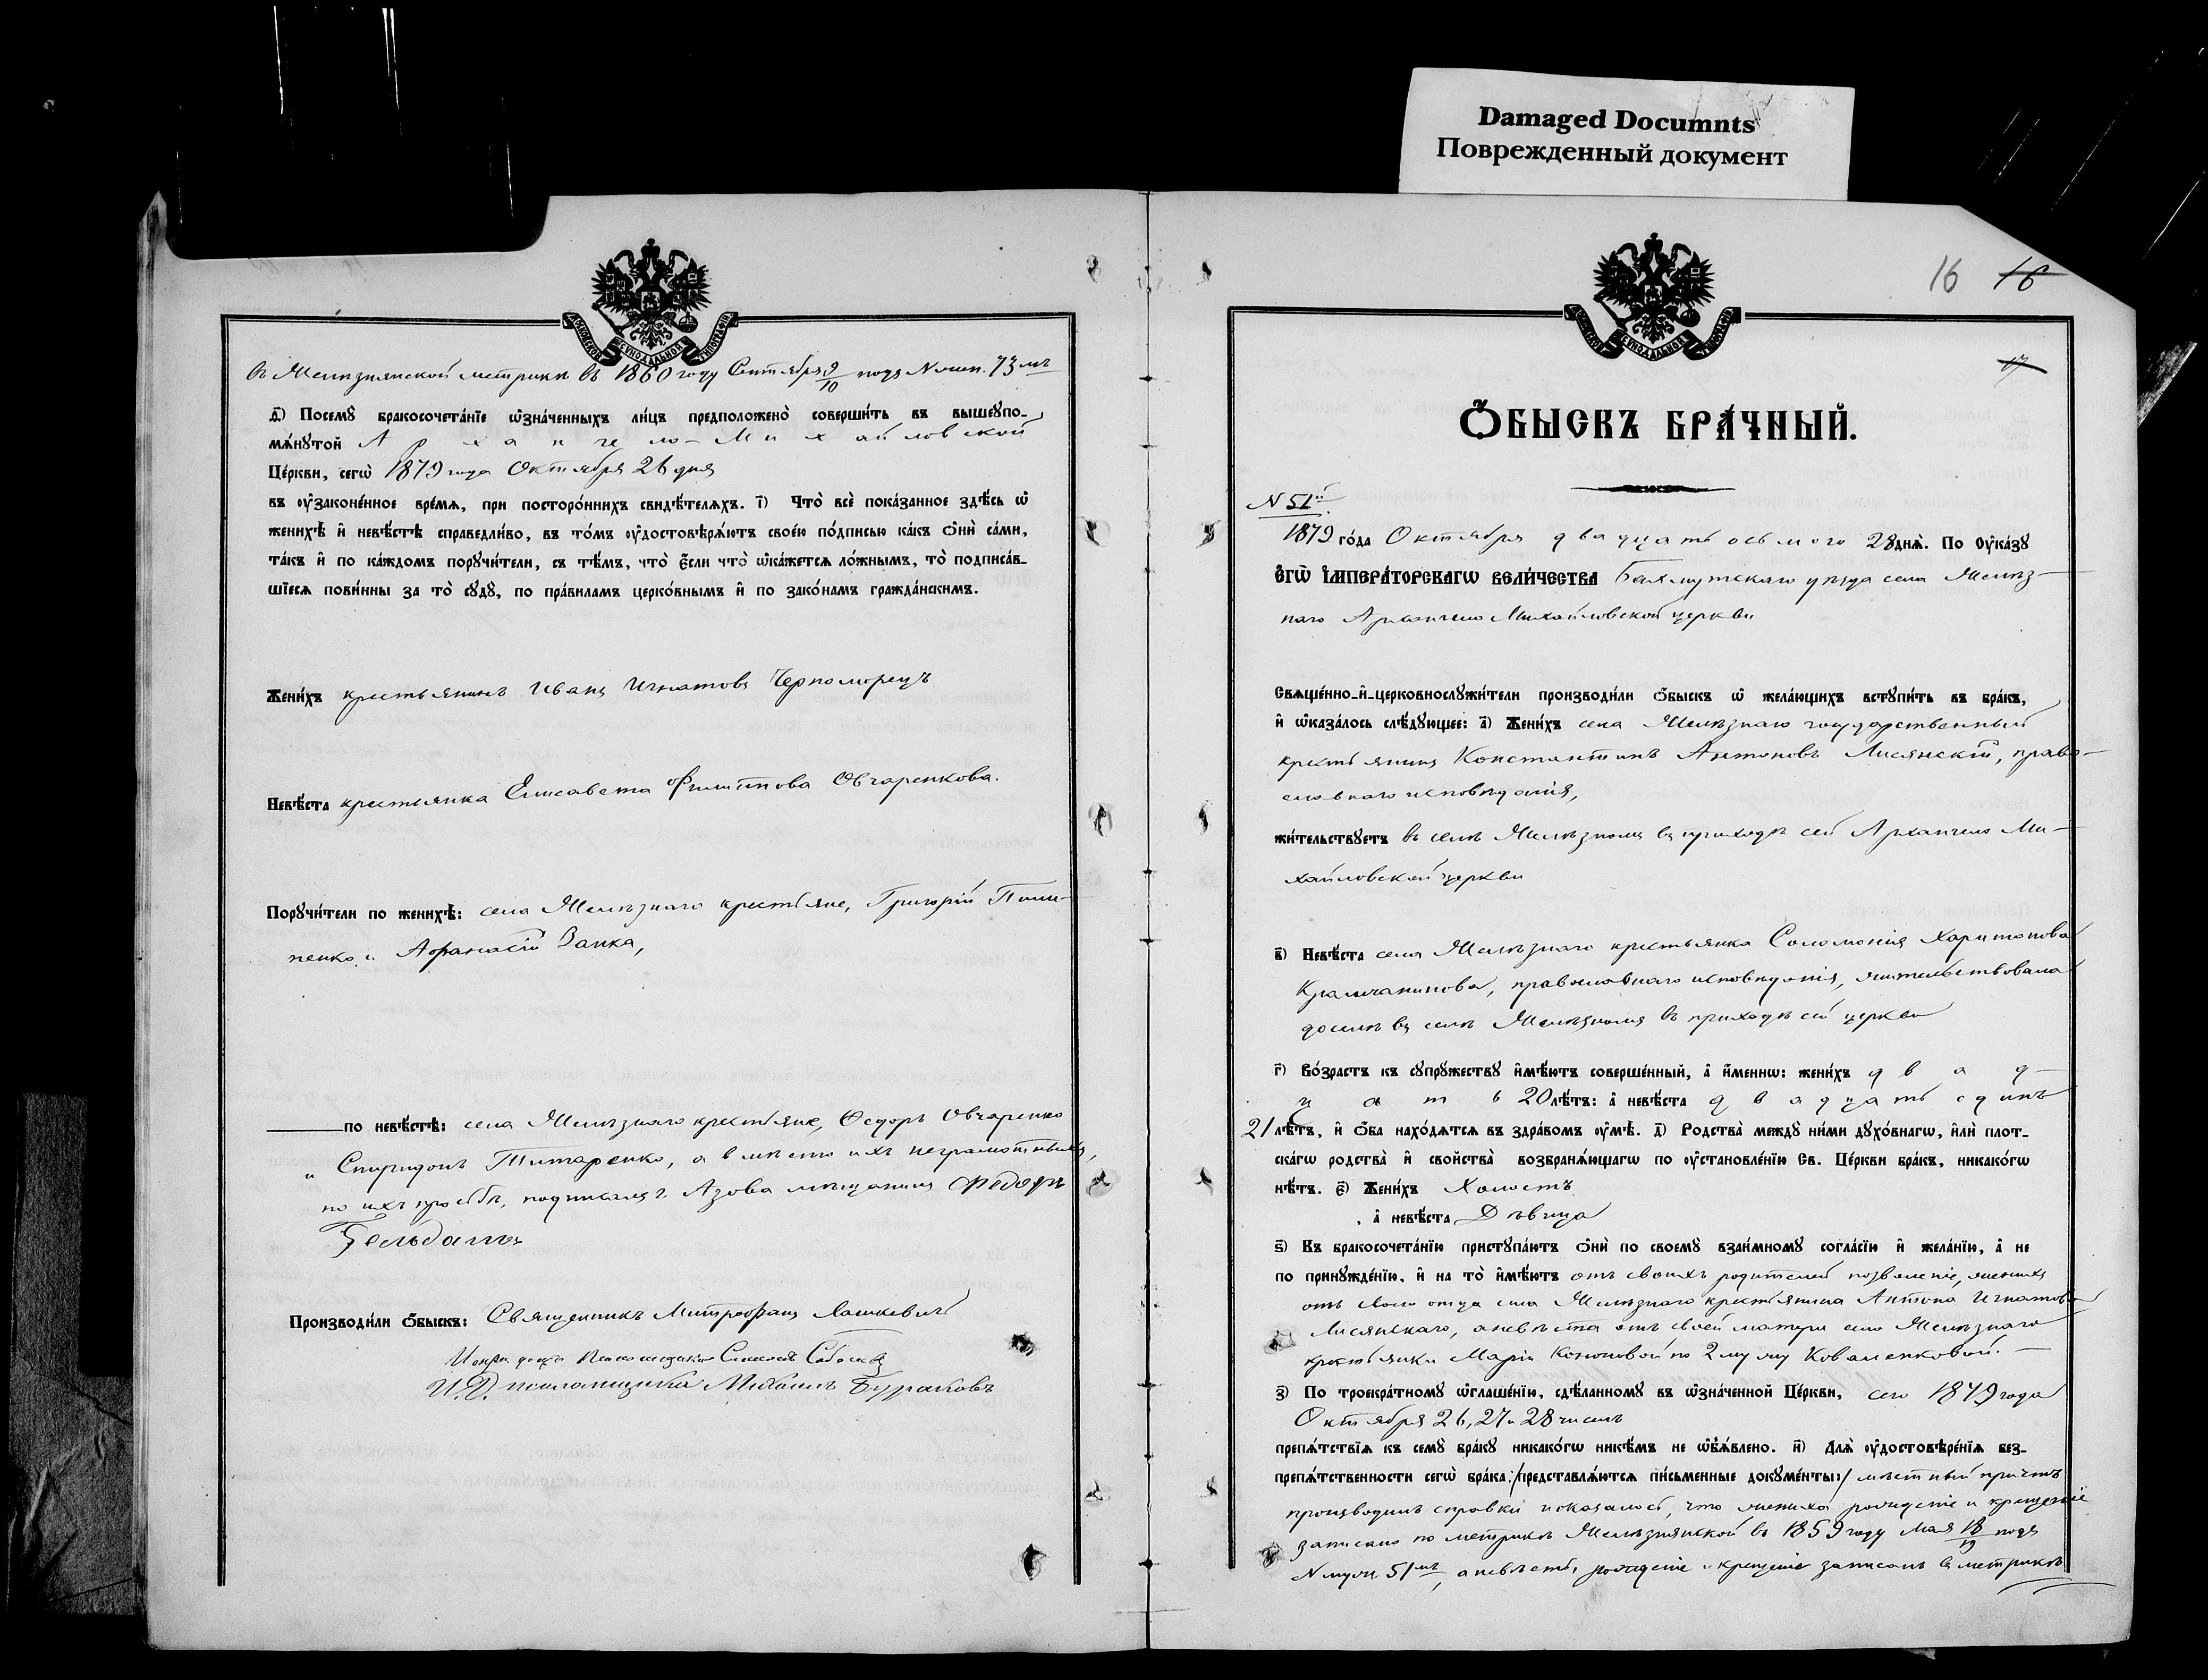 Damaged Documnts
Поврежденный документ
въ Желѣзнянской метрикѣ въ 1860 году Сентября 9/10 подъ № жен. 73мъ
д҃) Посемꙋ бракосочетáнїе ѡ҆знáченныхъ ли́цъ предположенò совершѝть въ вышеꙋпо-
мѧ́нꙋтой Архангело-Михайловской
Цéркви, сегѡ̀ 1879 года Октября 26 дня
въ ᲂу҆законéнное врéмѧ, при посторóннихъ свидѣ́телѧхъ. ı҃) Что̀ всѐ покáзанное здѣ́сь ѡ҆
женихѣ̀ и҆ невѣ́стѣ справедли́во, въ то́мъ ᲂу҆достовѣрѧ́ютъ своéю по́дписью кáкъ ѻ҆нѝ сáми,
тáкъ и҆ по кáждомъ порꙋчи́тели, съ тѣ́мъ, что̀ є҆́сли что̀ ѡ҆кáжетсѧ ло́жнымъ, то̀ подписáв-
шїесѧ пови́нны за то̀ сꙋдꙋ̀, по прáвиламъ церко́внымъ и҆ по зако́намъ граждáнскимъ.
Жени́хъ крестьянинъ Иванъ Игнатовъ Черноморецъ
Невѣ́ста крестьянка Елисавета Филиппова Овчаренкова.
Порꙋчи́тели по женихѣ̀: села Желѣзнаго крестьяне, Григорій
и Афанасій Заика,
по невѣ́стѣ: села Желѣзнаго крестьяне, Ѳедоръ Овчаренко
и Спиридонъ Титаренко, а вмѣсто ихъ неграмотныхъ,
по ихъ просьбѣ, подписался г. Азова мѣщанинъ Федоръ
Производи́ли ѻ҆́быскъ: Священникъ Митрофанъ
И. Д. псаломщика Михаилъ Бураковъ
16 16
17
Ѻ҆́БЫСКЪ БРА́ЧНЫЙ.
№ 51й
1879 го́да Октября двадцать осьмого 28 днѧ̀. По ᲂу҆кáзꙋ
Є҆ГѠ̀ И҆МПЕРА́ТОРСКАГѠ ВЕЛИ́ЧЕСТВА Бахмутскаго уѣзда села Желѣз-
наго Архангело Михайловской церкви
Свѧщéнно-и҆-церковнослꙋжи́тели производи́ли ѻ҆́быскъ ѡ҆ желáющихъ встꙋпи́ть въ брáкъ,
и҆ ѡ҆казáлось слѣ́дꙋющее: а҃) Жени́хъ села Желѣзнаго государственный
крестьянинъ Константинъ Антоновъ Лисянскій, право-
славнаго исповѣданія,
жи́тельствꙋетъ въ селѣ Желѣзномъ въ приходѣ сей Архангело Ми-
хайловской церкви
в҃) Невѣ́ста села Желѣзнаго крестьянка Соломонія Харитонова
православнаго исповѣданія, жительствовала
доселѣ въ селѣ Желѣзномъ въ приходѣ сей церкви
г҃) Во́зрастъ къ сꙋпрꙋ́жествꙋ и҆мѣ́ютъ совершéнный, а҆̀ и҆́менно: жени́хъ двад-
цать 20 лѣ́тъ: а҆̀ невѣ́ста двадцать одинъ
21 лѣ́тъ, и҆ ѻ҆́ба нахо́дѧтсѧ въ здрáвомъ ᲂу҆мѣ̀. д҃) Родствà междꙋ̀ ни́ми дꙋхо́внагѡ, и҆лѝ плот-
скáгѡ родствà и҆ свойствà возбранѧ́ющагѡ по ᲂу҆становлéнїю Св. Цéркви брáкъ, никако́гѡ
нѣ́тъ. є҃) Жени́хъ Холостъ
, а҆̀ невѣ́ста Дѣвица
ѕ҃) Къ бракосочетáнїю пристꙋпáютъ ѻ҆нѝ по своемꙋ̀ взаи́мномꙋ соглáсїю и҆ желáнїю, а҆̀ не
по принꙋждéнїю, и҆ на то̀ и҆мѣ́ютъ отъ своихъ родителей позволеніе, женихъ
отъ своего отца села Желѣзнаго крестьянина Антона Игнатова
Лисянскаго, а невѣста отъ своей матери села Желѣзнаго
крестьянки Маріи Кононовой по 2му мужу Коваленковой.
з҃) По троекрáтномꙋ ѡ҆глашéнїю, сдѣ́ланномꙋ въ ѡ҆знáченной Цéркви, сего 1879 года
Октября 26, 27 и 28 чиселъ
препѧ́тствїѧ къ семꙋ̀ брáкꙋ никако́гѡ никѣ́мъ не ѡ҆б̾ѧ́влено. и҃) Длѧ̀ ᲂу҆достовѣрéнїѧ без-
препѧ́тственности сегѡ̀ брáка:/представлѧ́ютсѧ пи́сьменные докꙋмéнты:/ мѣстный причтъ
производилъ справки и оказалось, что жениха рожденіе и крещеніе
записано по метрикѣ Желѣзнянской въ 1859 году мая 18/19 подъ
№ муж. 51мъ, а невѣсты рожденіе и крещеніе записано въ метрикѣ